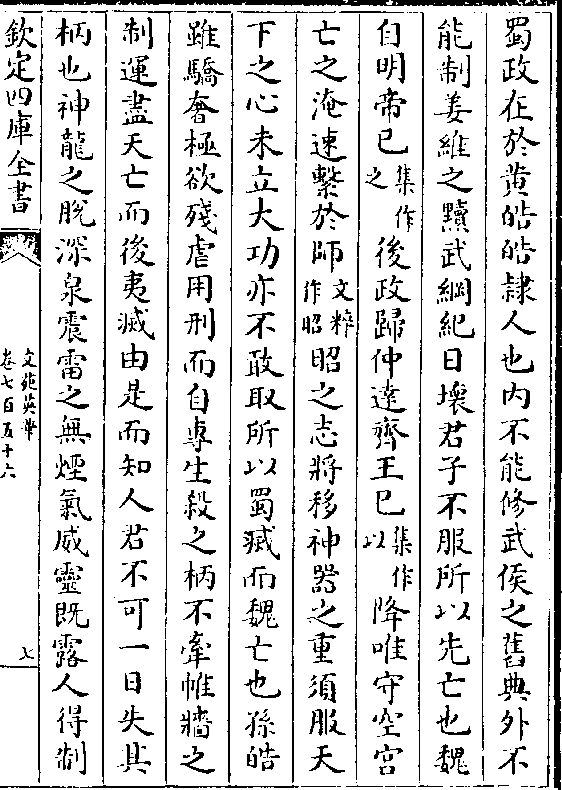 蜀政在於黄皓皓隷人也内不能修武侯之舊典外不
能制姜維之黷武綱紀日壞君子不服所以先亡也魏
自明帝已集作之後政歸仲達齊王已集作以降唯守空宫
亡之淹速繫於師文粹作昭昭之志將移神器之重須服天
下之心未立大功亦不敢取所以蜀㓕而魏亡也孫皓
雖驕奢極欲殘虐用刑而自專生殺之柄不牽帷牆之
制運盡天亡而後夷㓕由是而知人君不可一日失其
柄也神龍之脱深泉震雷之無煙氣威靈既露人得制
欽定四庫全書
文苑英華
卷七百五十六
七